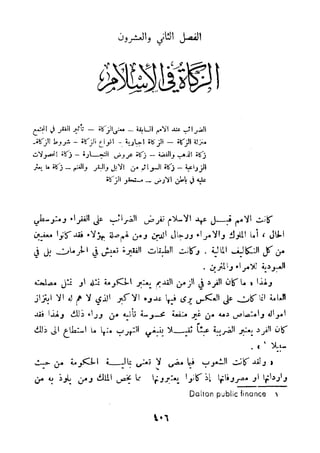 الفصل الثاني والعشرون
الزكاة في الإسلام
الضرائب عند الأمم السابقة – معنى الزكاة – تأثير الفقر في المجتمع
منزلة الزكاة – الزكاة اجبارية – أنواع الزكاة – شروط الزكاة –
زكاة الذهب والفضة – عروض التجارة – زكاة المحصولات
الزراعية – زكاة السوائم من الابل والبقر والغنم – زكاة ما يعثر
عليه في باطن الأرض – مستحقو الزكاة
كانت الأمم قبل عهد الاسلام تفرض الضرائب على الفقراء ومتوسطي
الحال « أما الملوك والأمراء ورجال الدين ومن لهم صلة بهؤلاء فقد كانوا معفين
من كل التكاليف المالية . وكانت الطبقات الفقيرة تعيش في الحرمان بل في
العبودية للأمراء والمترفين .
وهذا « كان الفرد في الزمن القديم يعتبر الحكومة عدوا له او تمثل مصلحة
العامة اذ كان على العكس يرى فيها عدوه الأكبر الذي لا هم له الا ابتزاز
امواله واستخدامها ضده من غير منفعة محسوسة تأتيه من وراء ذلك ولهذا فقد
كان الفرد يعتبر الضريبة عبئا ثقيلا ينبغي التهرب منها ما استطاع الى ذلك
سبيلا » ¹ .
« ولقد كانت الشعوب فيما مضى لا تعنى بمالية الحكومة من حيث
وارداتها او مصروفاتها اذ كانوا يعتبرونها مما يخص الملك ومن يلوذ به من
١ Dalton public finance
٤٠٦